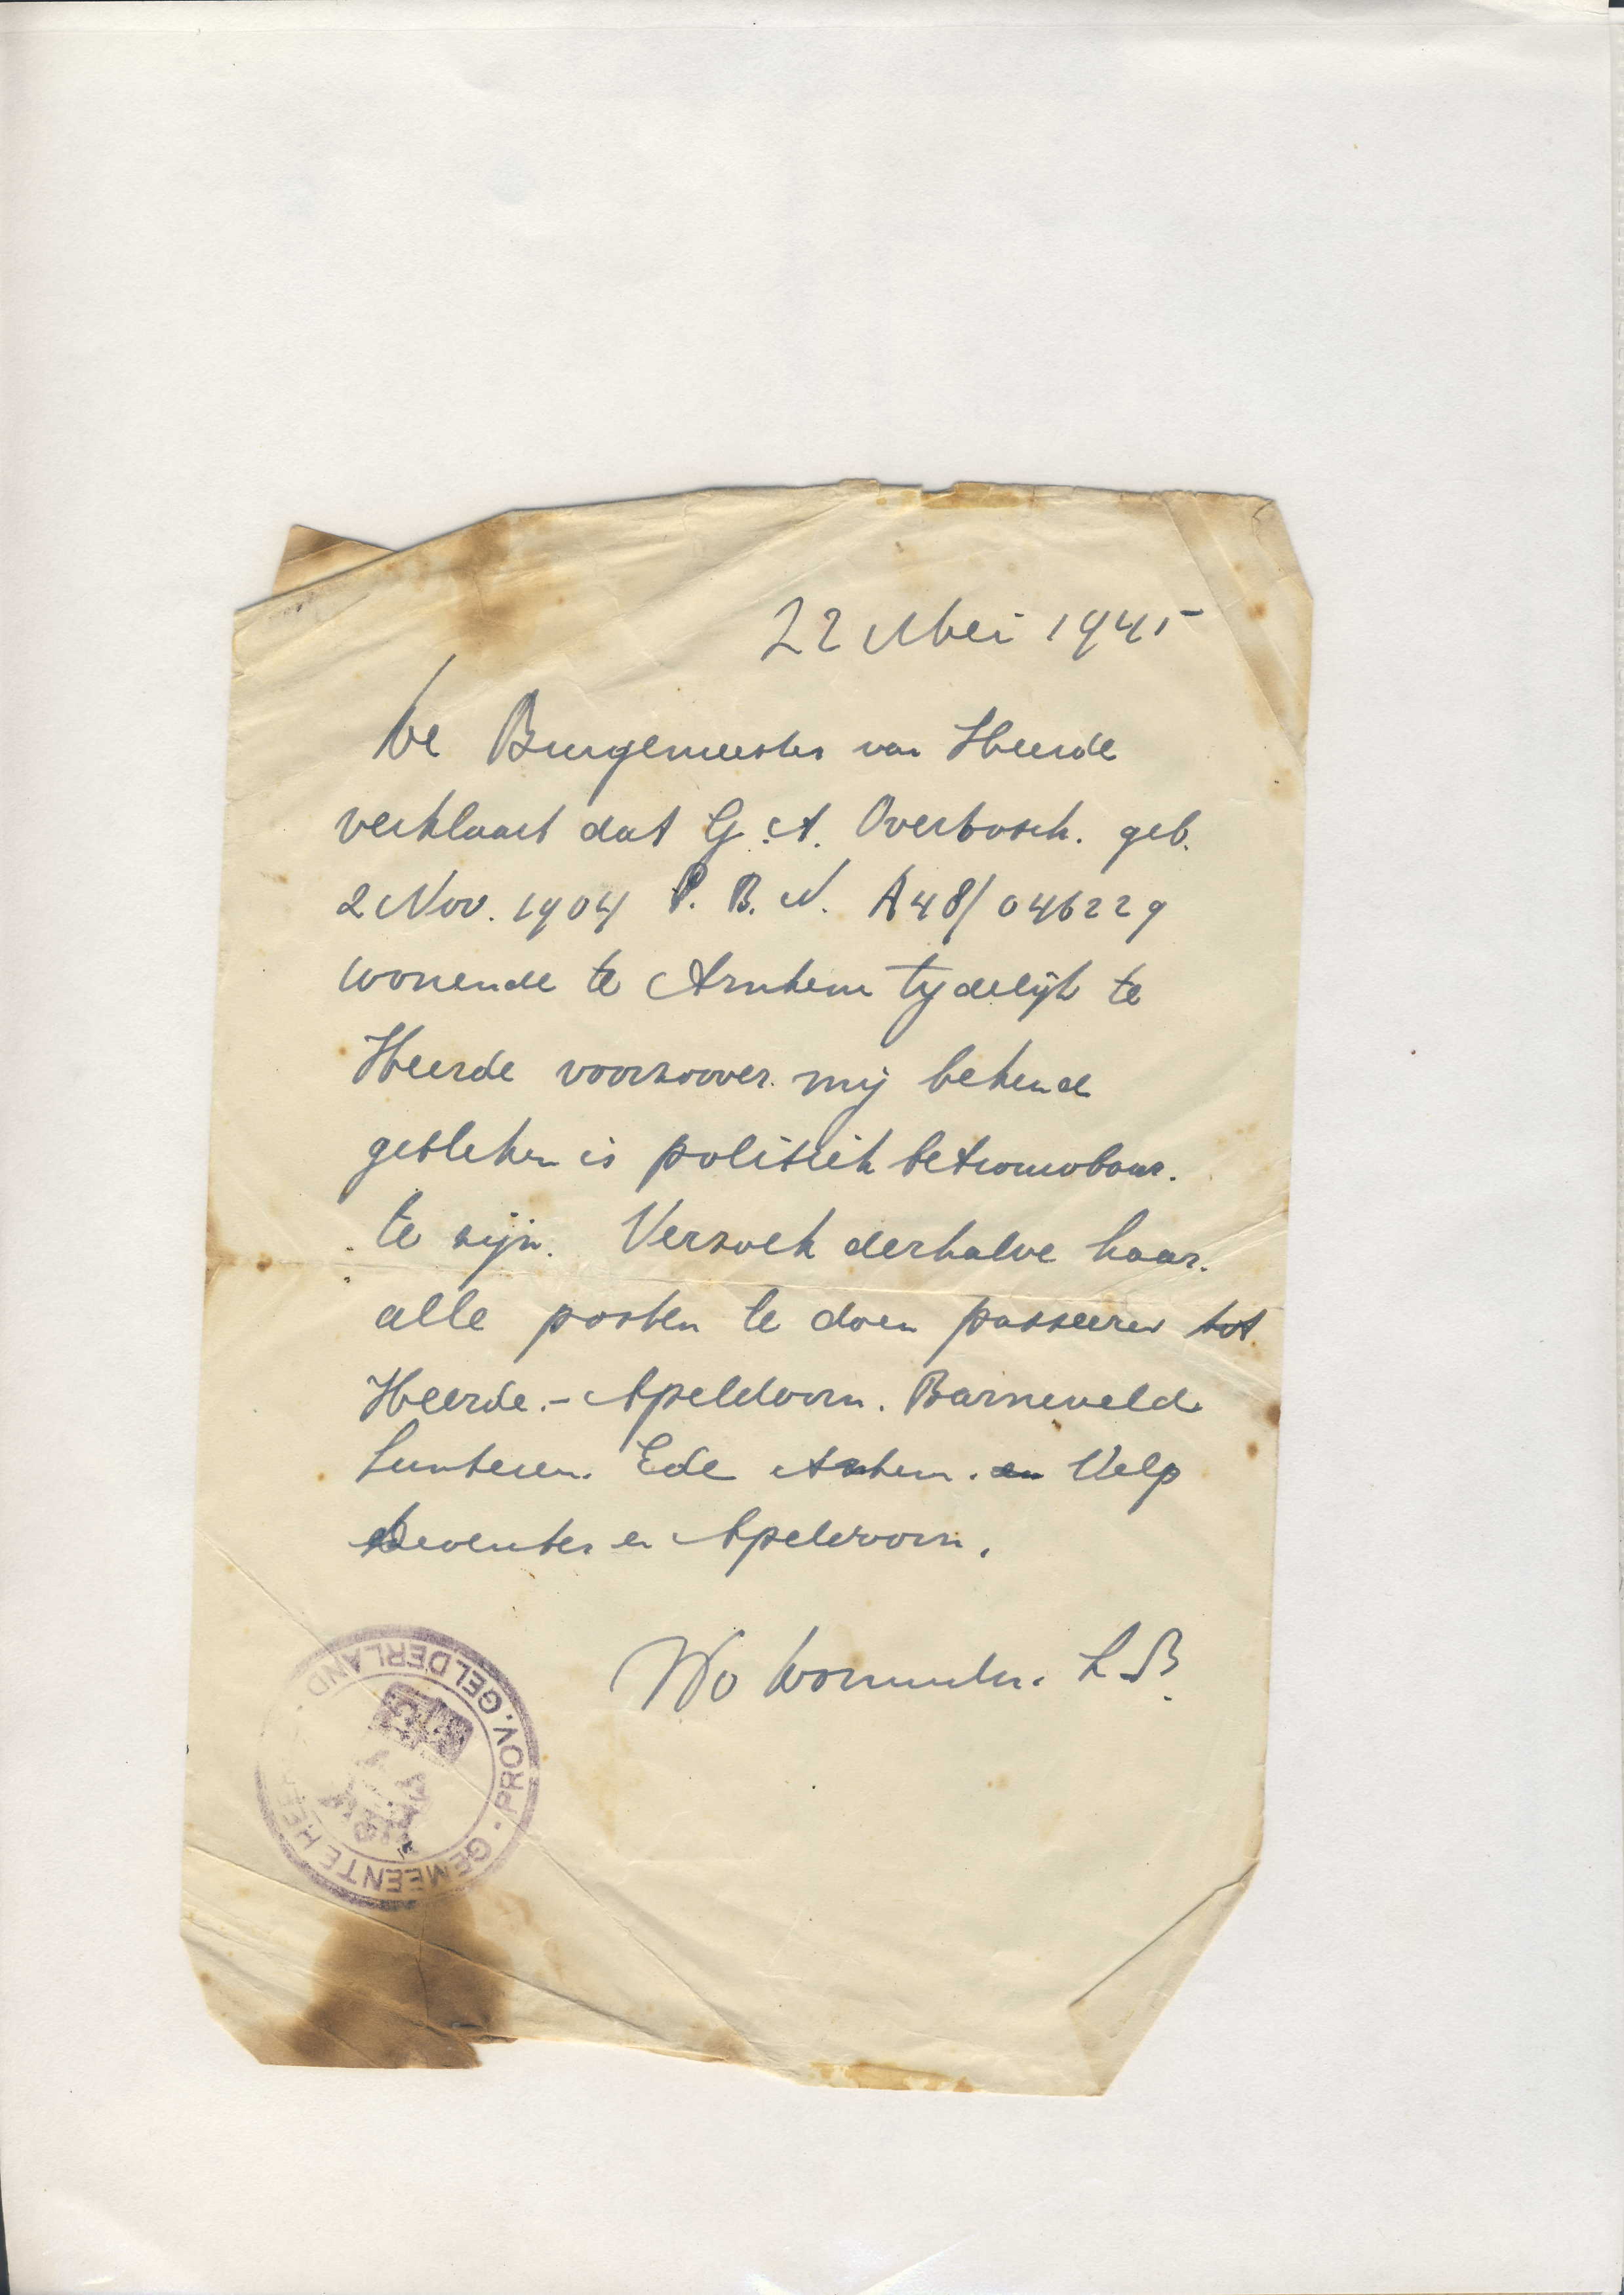 22 Mei 1945
De Burgemeester van Heerde
verklaart dat G. A. Overbosch. geb.
2 Nov. 1904 P. B. N. A48/046229
wonende te Arnhem tydelijk te
Heerde voorzoover mij bekend
gebleken is politiek betrouwbaar.
te zijn. Verzoek derhalve haar.
alle posten te doen passeeren tot
Heerde.- Apeldoorn. Barneveld
Lunteren. Ede Arnhem. en Velp
Deventer en Apeldoorn.
Wo L.B.
GEMEENTE HEE · PROV. GELDERLAND ·